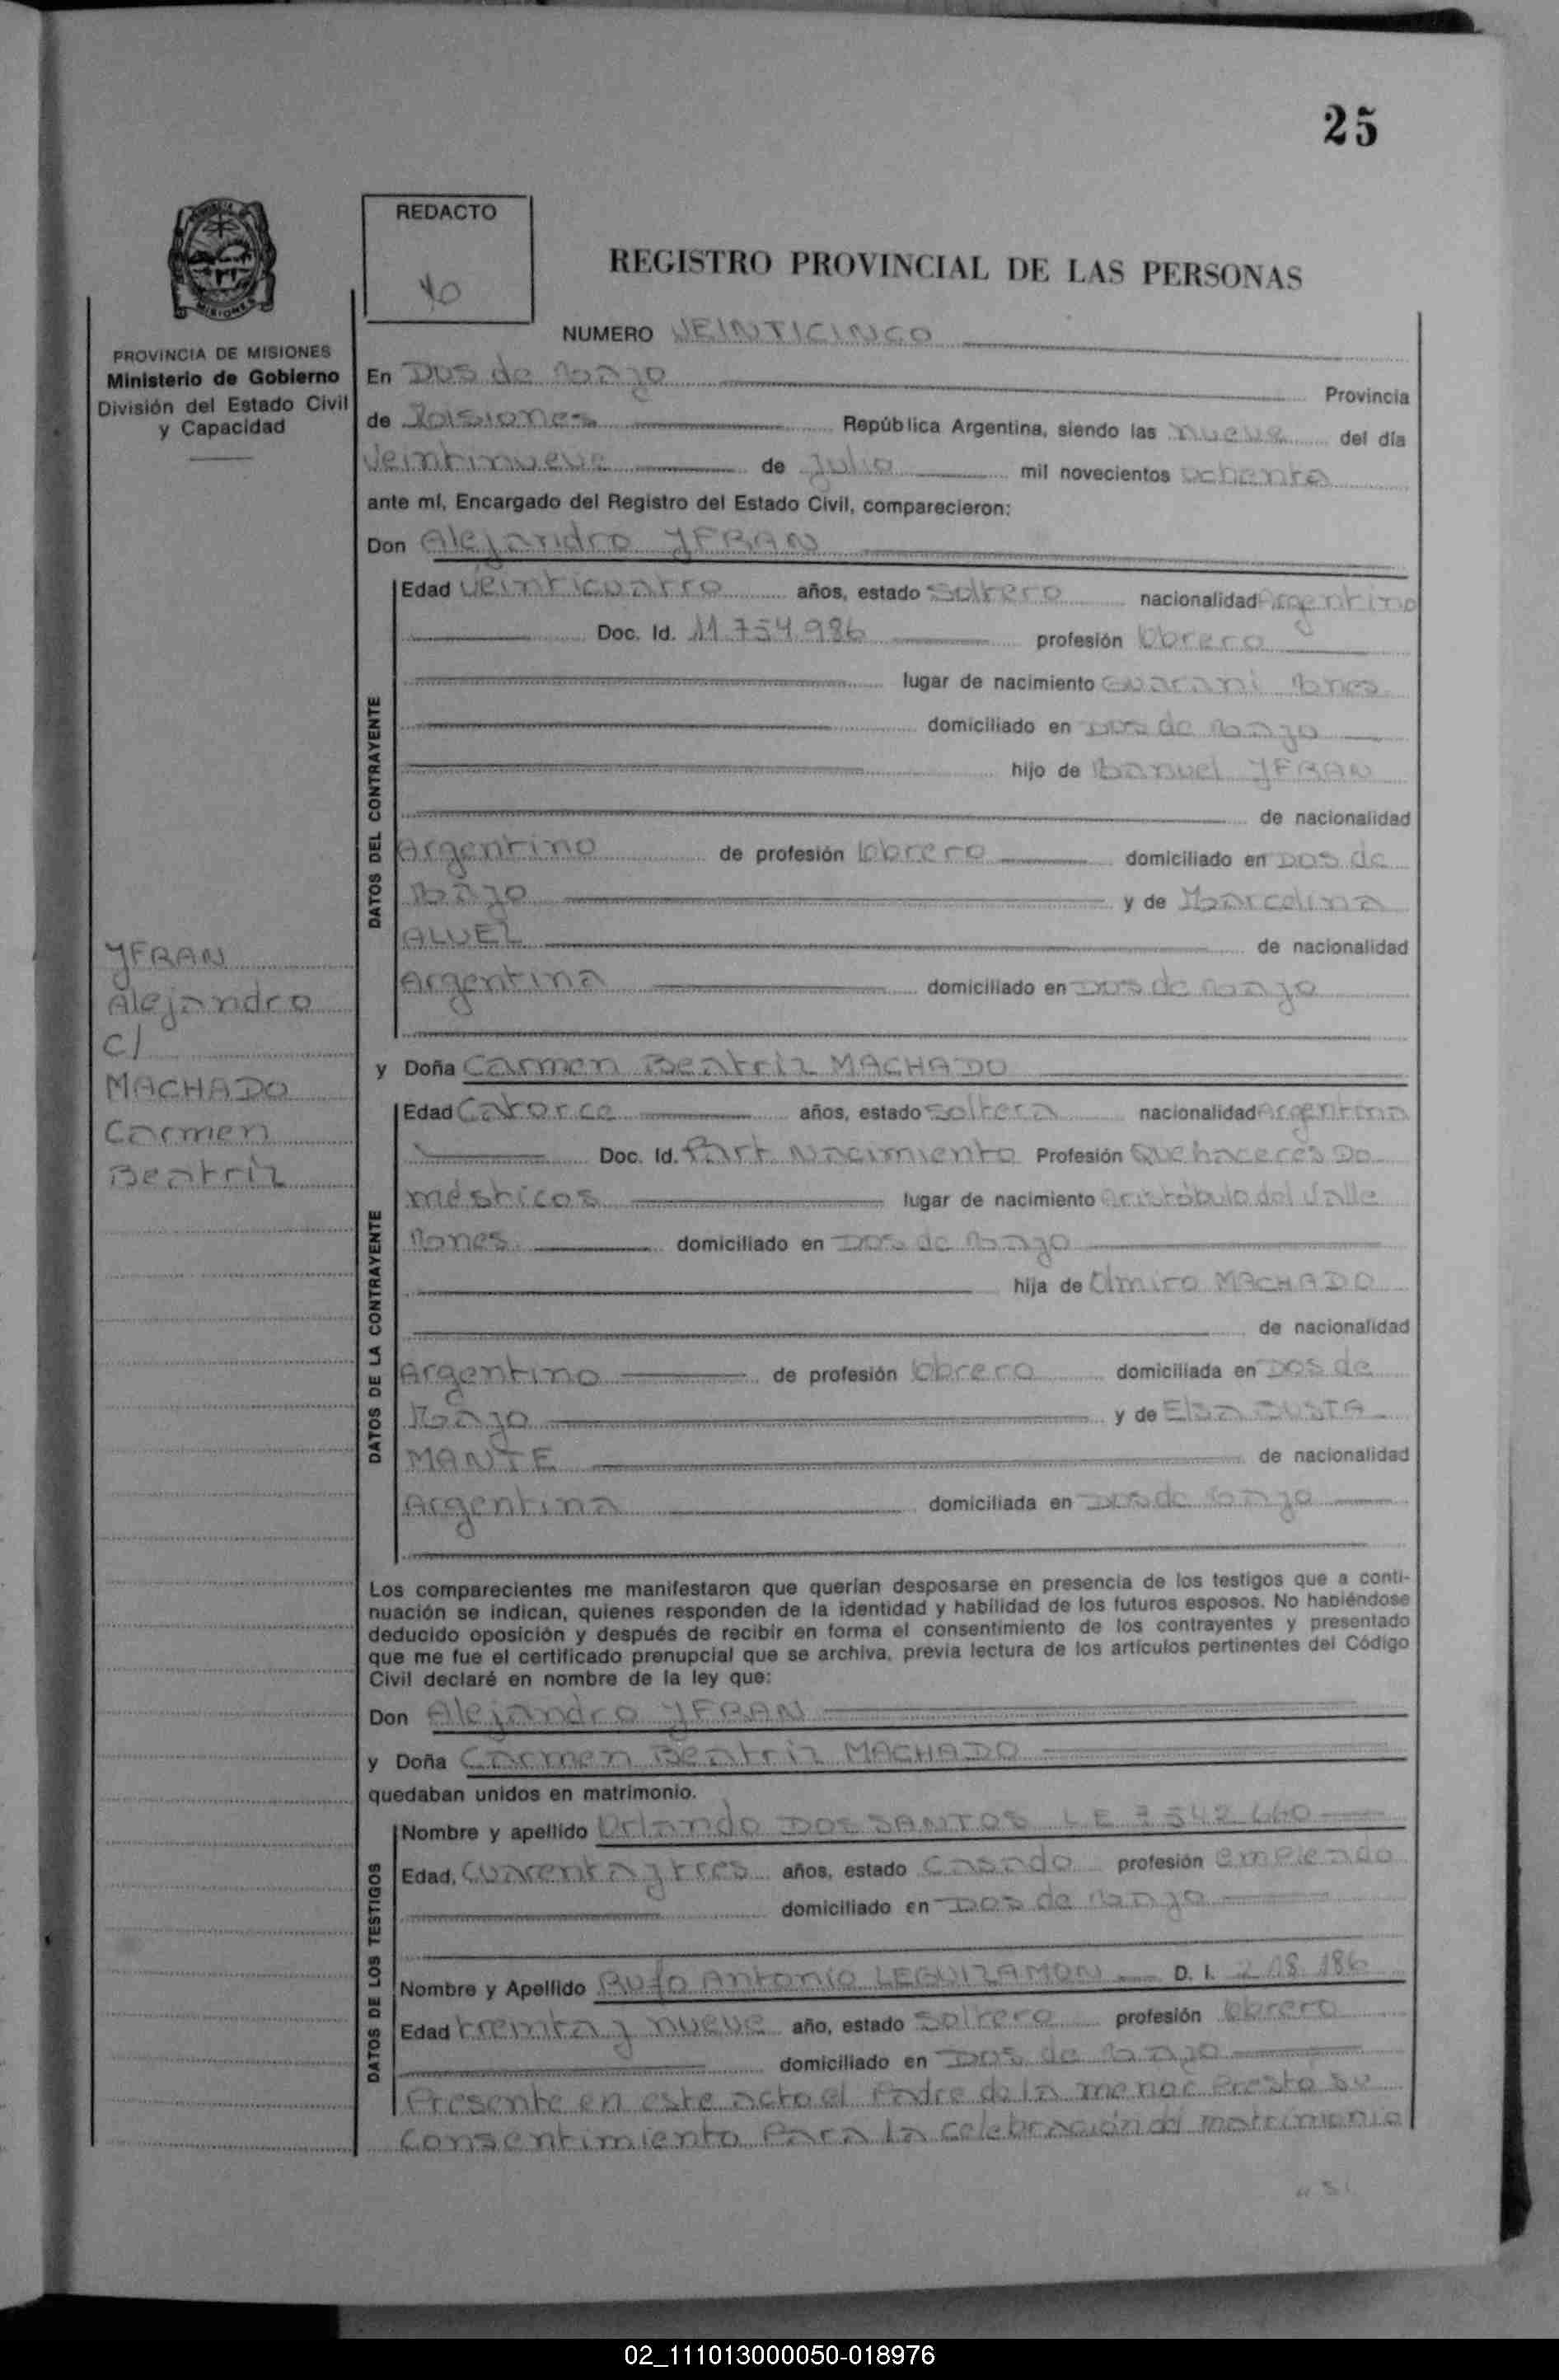 25
REDACTO
REGISTRO PROVINCIAL DE LAS PERSONAS
NUMERO VEINTICINCO
PROVINCIA DE MISIONES
Ministerio de Gobierno
División del Estado Civil
y Capacidad
En Dos de Mayo Provincia
de Misiones República Argentina, siendo las nueve del día
Veintinueve de Julio mil novecientos ochenta
ante mí, Encargado del Registro del Estado Civil, comparecieron:
Don Alejandro YFRAN
DATOS DEL CONTRAYENTE
Edad Veinticuatro años, estado Soltero nacionalidad Argentino
Doc. Id. 11.754.986 profesión Obrero
lugar de nacimiento Guarani Mnes
domiciliado en Dos de Mayo
hijo de Manuel YFRAN
de nacionalidad
Argentino de profesión Obrero domiciliado en Dos de
Mayo y de Marcelina
de nacionalidad
Argentina domiciliado en Dos de Mayo
YFRAN
Alejandro
C/
MACHADO
Carmen
Beatriz
y Doña Carmen Beatriz MACHADO
DATOS DE LA CONTRAYENTE
Edad Catorce años, estado Soltera nacionalidad Argentina
Doc. Id. Part. Nacimiento Profesión Quehaceres Do
mésticos lugar de nacimiento Aristóbulo del Valle
Mnes. domiciliado en Dos de Mayo
hija de Olmiro MACHADO
de nacionalidad
Argentino de profesión Obrero domiciliada en Dos de
Mayo y de Elsa BUSTA
MANTE de nacionalidad
Argentina domiciliada en Dos de Mayo
Los comparecientes me manifestaron que querían desposarse en presencia de los testigos que a conti-
nuación se indican, quienes responden de la identidad y habilidad de los futuros esposos. No habiéndose
deducido oposición y después de recibir en forma el consentimiento de los contrayentes y presentado
que me fue el certificado prenupcial que se archiva, previa lectura de los artículos pertinentes del Código
Civil declaré en nombre de la ley que:
Don Alejandro YFRAN
y Doña Carmen Beatriz MACHADO
quedaban unidos en matrimonio.
DATOS DE LOS TESTIGOS
Nombre y apellido Orlando DOS SANTOS L E 7.542.660
Edad, Cuarenta y tres años, estado Casado profesión empleado
domiciliado en Dos de Mayo
Nombre y Apellido Rufo Antonio LEGUIZAMON D. I. 218.186
Edad treinta y nueve año, estado Soltero profesión Obrero
domiciliado en Dos de Mayo
Presente en este acto el Padre de la menor Presta su
Consentimiento Para la celebración del matrimonio
02_111013000050-018976